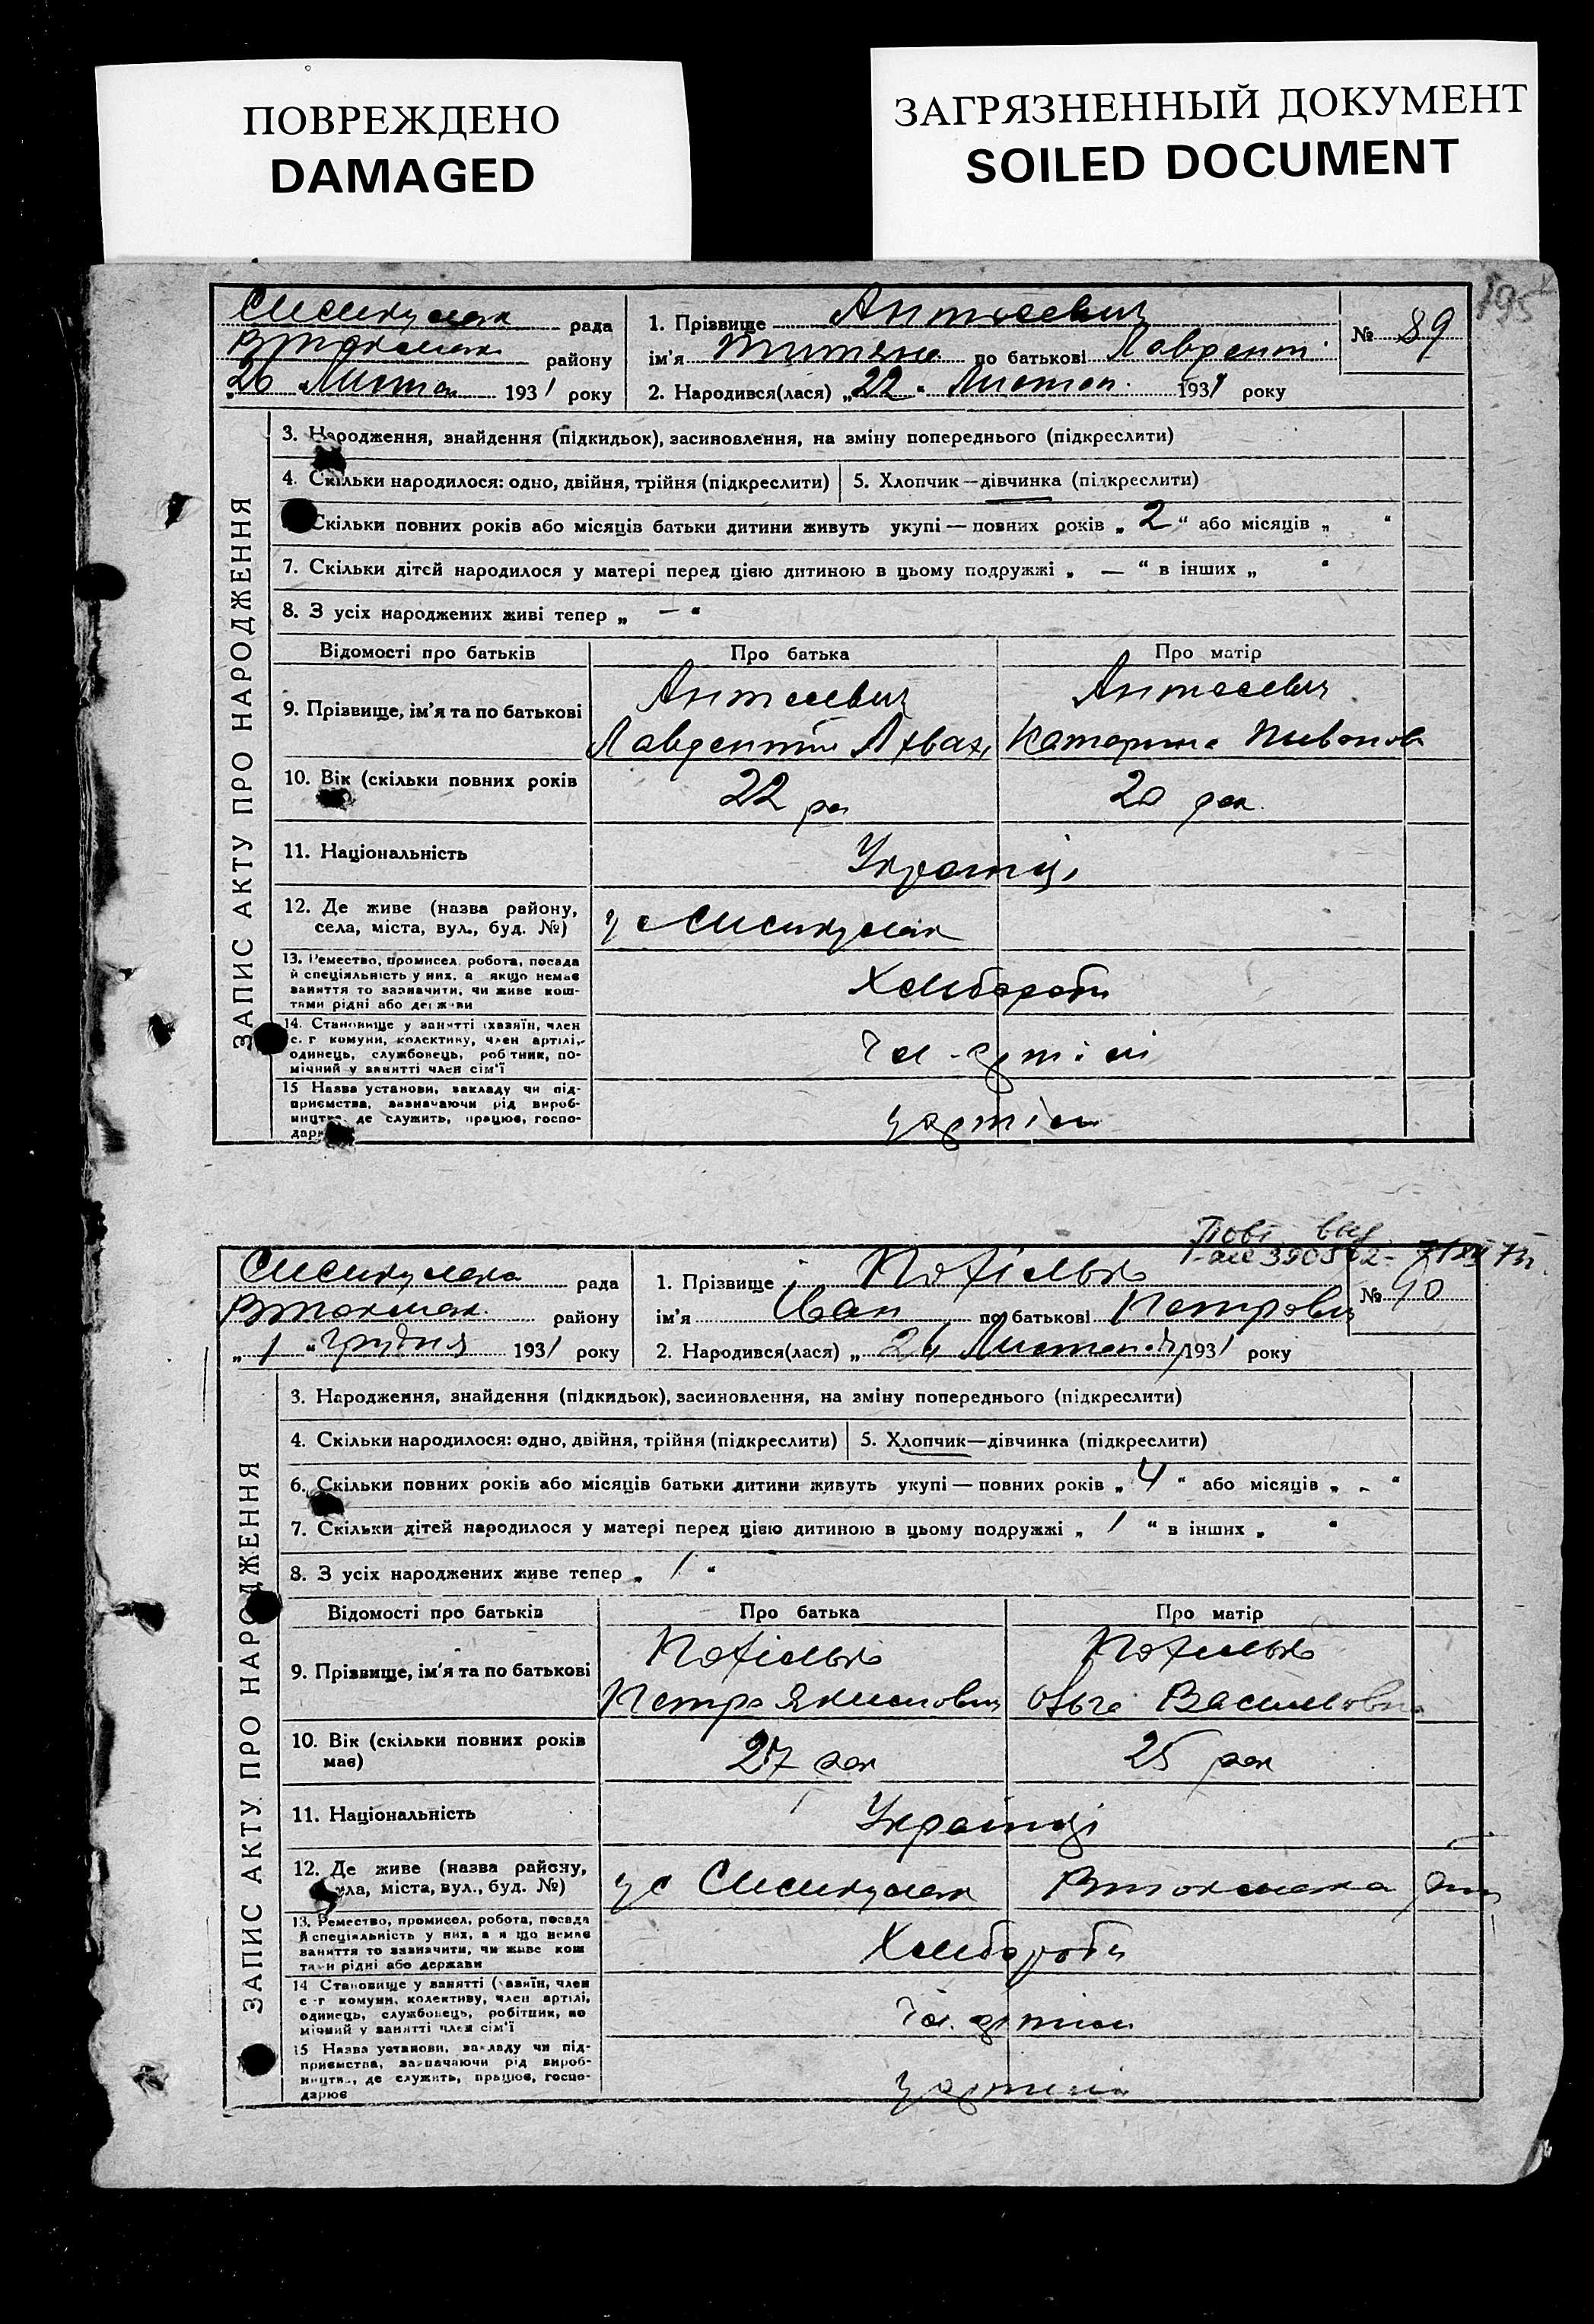 ПОВРЕЖДЕНО
DAMAGED
ЗАГРЯЗНЕННЫЙ ДОКУМЕНТ
SOILED DOCUMENT
195
рада
району
26 Листоп 1931 року
1. Прізвище Антосевич
ім'я Титяна по батькові Лаврент
2. Народився(лася) „22“ Листоп. 1931 року
№ 89
ЗАПИС АКТУ ПРО НАРОДЖЕННЯ
3. Народження, знайдення (підкидьок), засиновлення, на зміну попереднього (підкреслити)
4. Скільки народилося: одно, двійня, трійня (підкреслити)
5. Хлопчик—дівчинка (підкреслити)
Скільки повних років або місяців батьки дитини живуть укупі — повних років „ 2 “ або місяців „ “
7. Скільки дітей народилося у матері перед цією дитиною в цьому подружжі „ — “ в інших „ “
8. З усіх народжених живі тепер „ — “
Відомості про батьків
Про батька
Про матір
9. Прізвище, ім'я та по батькові
Антосевич
Лаврентій
Антосевич
Катерина
10. Вік (скільки повних років
22 рок
20 рок
11. Національність
Українці
12. Де живе (назва району,
села, міста, вул., буд. №)
13. Ремество, промисел, робота, посада
й спеціяльність у них, а якщо немає
заняття то зазначити, чи живе кош-
тами рідні або держави
Хлібороби
14. Становище у занятті (хазяїн, член
с.-г. комуни, колективу, член артілі,
одинець, службовець, робітник, по-
мічний у занятті член сім'ї
15 Назва установи, закладу чи під-
приємства, зазначаючи рід вироб-
ництва, де служить, працює, госпо-
дарює
у артілі
390562
рада
району
„ 1 “ Грудня 1931 року
1. Прізвище
ім'я Іван по батькові Петрович
2. Народився(лася) „ 26 Листопада 1931 року
№ 90
ЗАПИС АКТУ ПРО НАРОДЖЕННЯ
3. Народження, знайдення (підкидьок), засиновлення, на зміну попереднього (підкреслити)
4. Скільки народилося: одно, двійня, трійня (підкреслити)
5. Хлопчик—дівчинка (підкреслити)
6. Скільки повних років або місяців батьки дитини живуть укупі — повних років „ 4 “ або місяців „ - “
7. Скільки дітей народилося у матері перед цією дитиною в цьому подружжі „ 1 “ в інших „ “
8. З усіх народжених живе тепер „ 1 “
Відомості про батьків
Про батька
Про матір
9. Прізвище, ім'я та по батькові
Петро
Ольга Василівна
10. Вік (скільки повних років
має)
27 рок
25 рок
11. Національність
Українці
12. Де живе (назва району,
села, міста, вул., буд. №)
13. Ремество, промисел, робота, посада
й спеціяльність у них, а якщо немає
заняття то зазначити, чи живе кош
тами рідні або держави
Хлібороби
14 Становище у занятті (хазяїн, член
с-г комуни, колективу, член артілі,
одинець, службовець, робітник, по
мічний у занятті член сім'ї
15 Назва установи, закладу чи під-
приємства, зазначаючи рід вироб-
ництва, де служить, працює, госпо-
дарює
у артілі